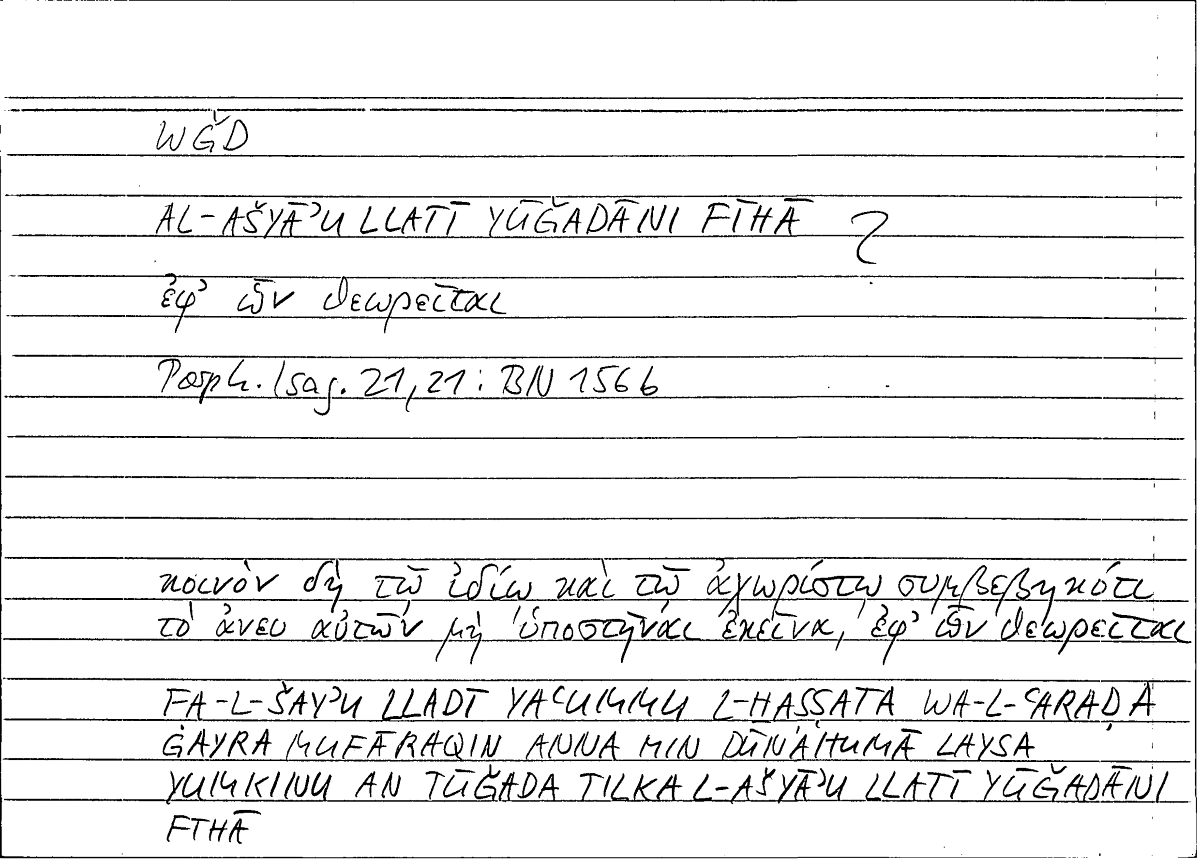 WǦD
AL-AŠYĀʾU LLATĪ YŪǦADĀNI FĪHĀ ?
ἐφ᾽ ὧν θεωρεῖται
Porph. Isag. 21,21: BN 156b
κοινὸν δὴ τῷ ἰδίῳ καὶ τῷ ἀχωρίστῳ συμβεβηκότι
τὸ ἄνευ αὐτῶν μὴ ὑποστῆναι ἐκεῖνα, ἐφ᾽ ὧν θεωρεῖται
FA-L-ŠAYʾU LLAḎĪ YAʿUMMU L-ḪĀṢṢATA WA-L-ʿARAḌA
ĠAYRA MUFĀRAQIN ANNA MIN DŪNĀHUMĀ LAYSA
YUMKINU AN TŪǦADA TILKA L-AŠYĀʾU LLATĪ YŪǦADĀNI
FĪHĀ